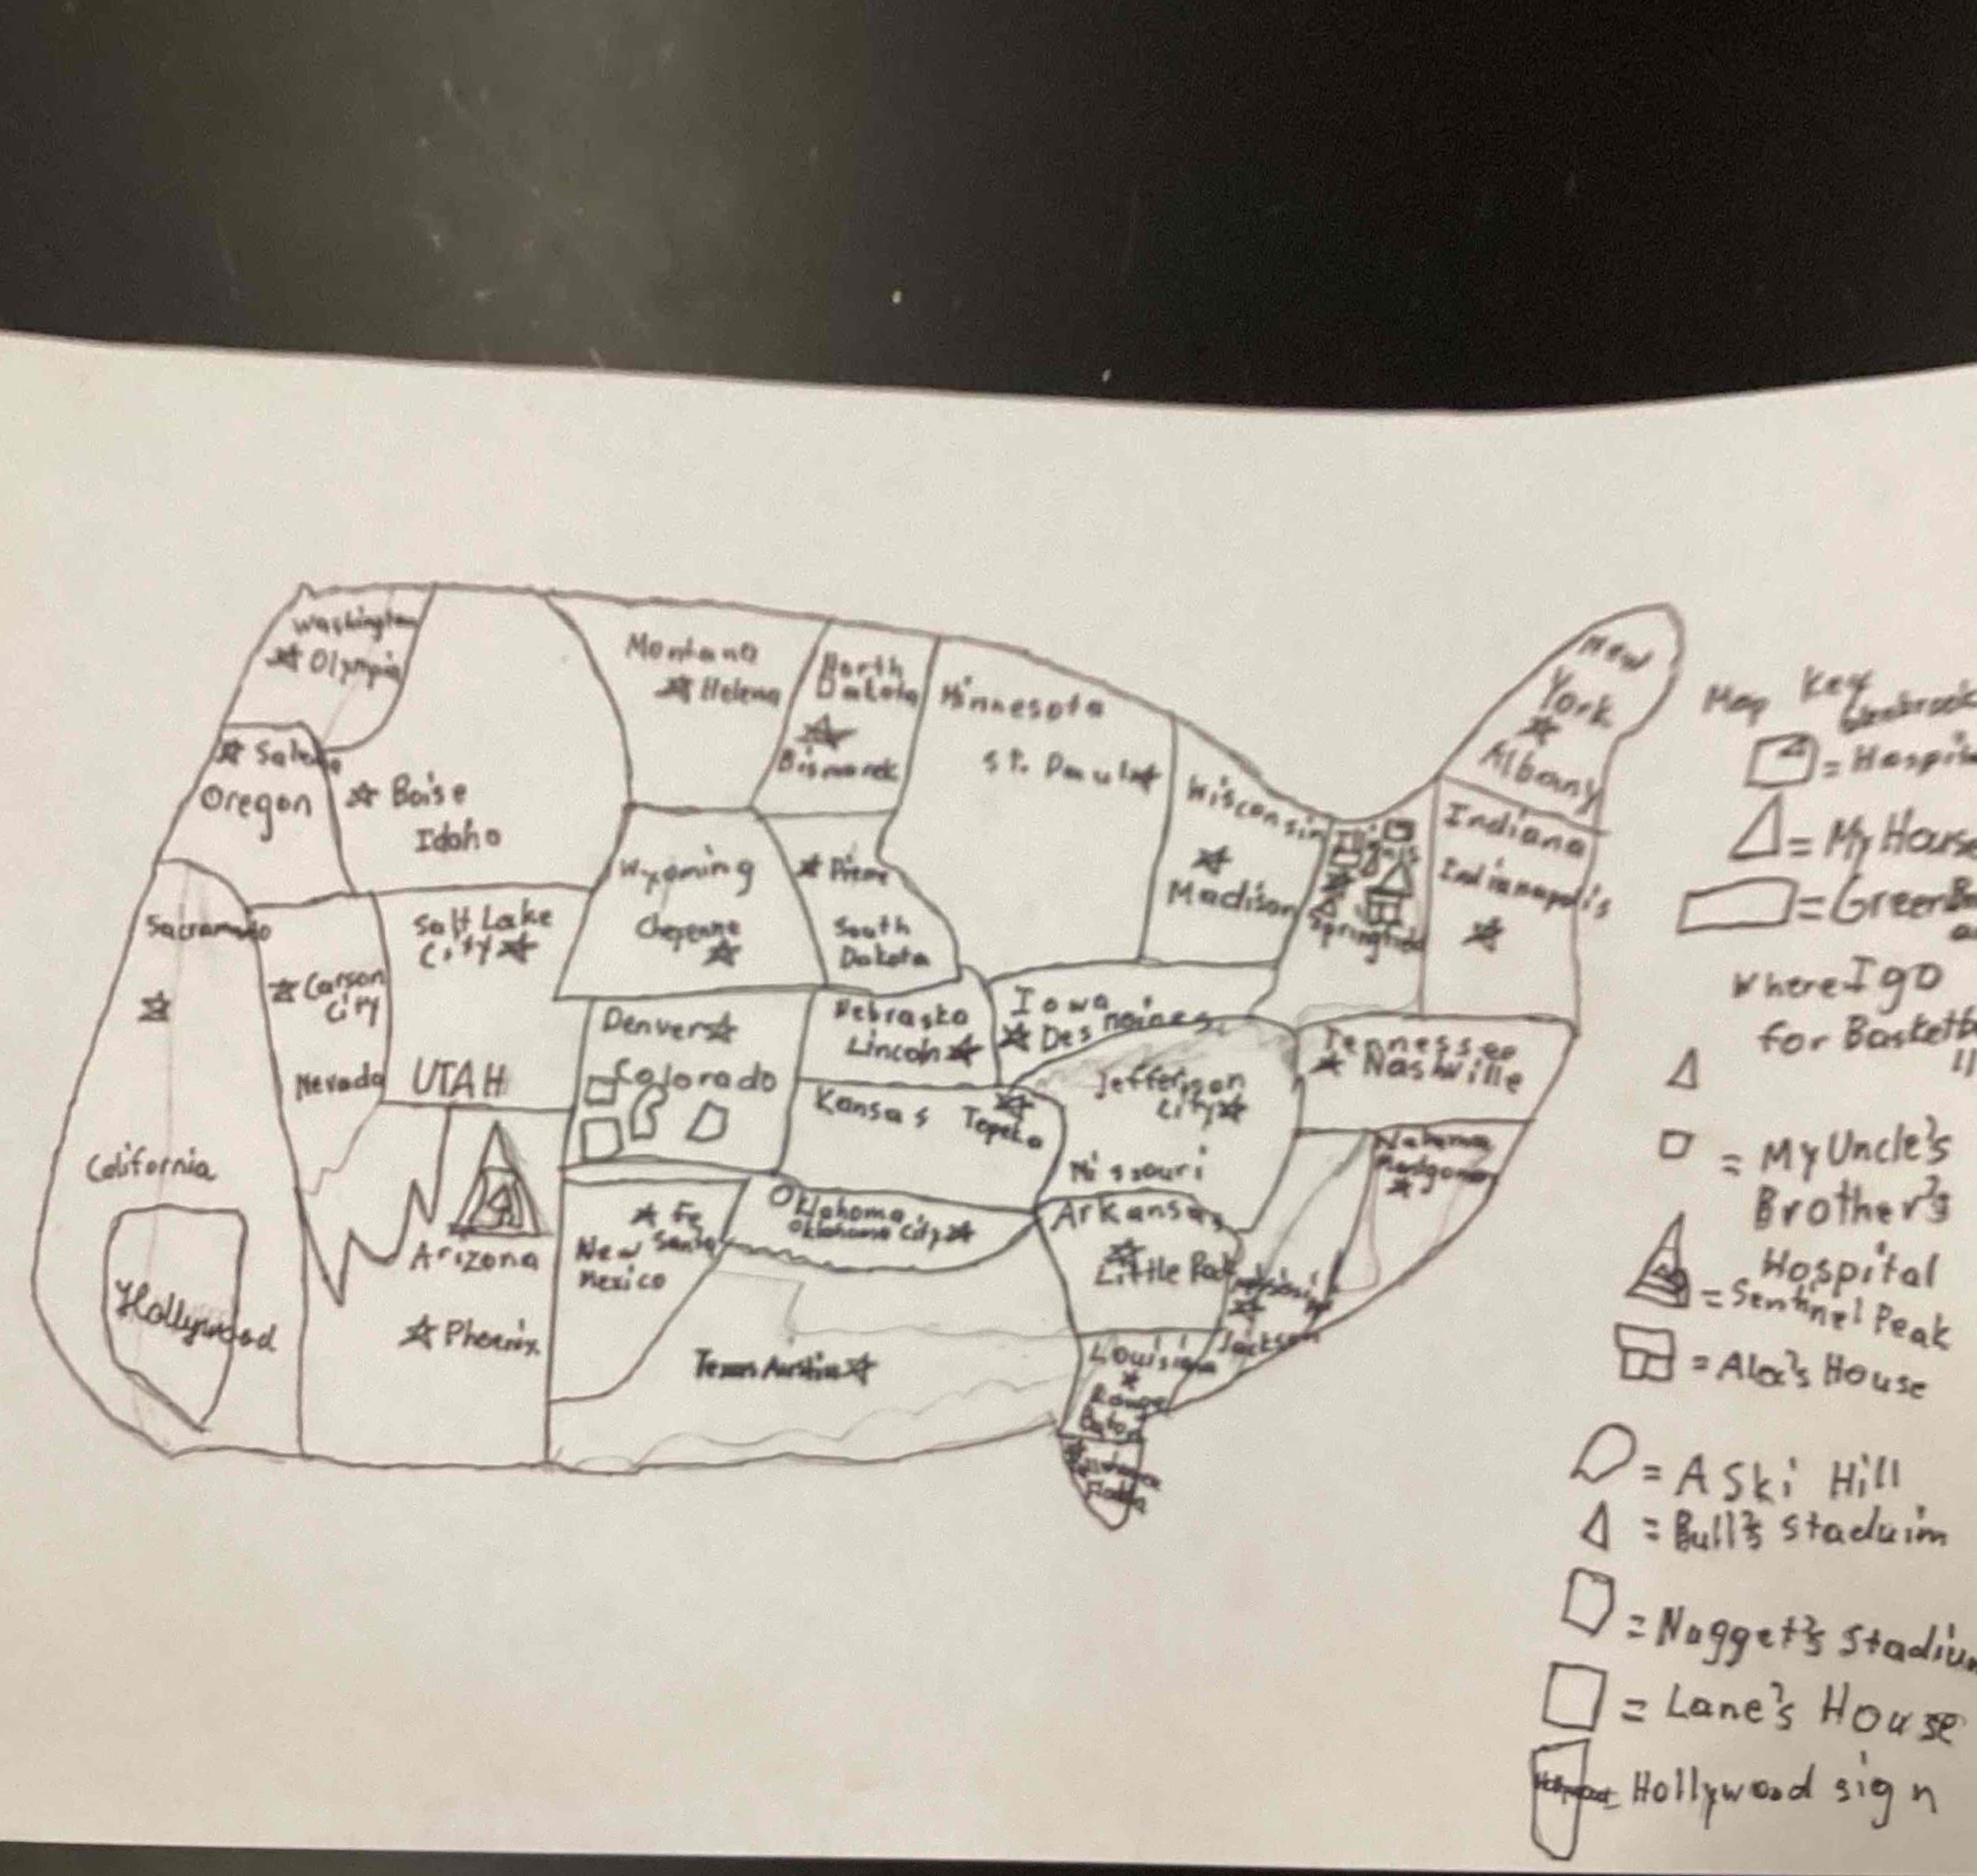 Washington
Olympia
Salem
Oregon
Boise
Idaho
Montana
Helena
North
Dakota
Bismarck
Minnesota
St. Paul
Wisconsin
Madison
Springfield
Indiana
Indianapolis
New
York
Albany
Wyoming
Cheyenne
Pierre
South
Dakota
Sacramento
Carson
City
Nevada
Salt Lake
City
UTAH
Denver
Colorado
Nebraska
Lincoln
Iowa
Des moines
Kansas Topeka
Jefferson
City
Missouri
Tennessee
Nashville
Montgomery
California
Hollywood
Arizona
Phoenix
Fe
New Santa
Mexico
Oklahoma
Oklahoma City
Texas Austin
Arkansas
Little Rock
Jackson
Louisiana
Rouge
Baton
Map Key
= Hospit
= My House
= Green
Where I go
for Basketb
ll
= My Uncle's
Brother's
Hospital
= Sentinel Peak
= Alex's House
= A Ski Hill
= Bull's staduim
= Nugget's stadiu
= Lane's House
Hollywood sign